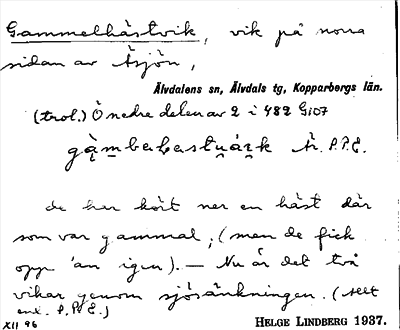 Gammelhästvik, vik på norra
sidan av Åsjön,
Älvdalens sn, Älvdals tg, Kopparbergs län.
(trol.) Ö nedre delen av 2 i 482 G107
Är. P.P.E.
de har kört ner en häst där
som var gammal, (men de fick
opp 'an igen). – Nu är det två
vikar genom sjösänkningen. (Allt
enl. P.P.E.)
XII 96 HELGE LINDBERG 1937.